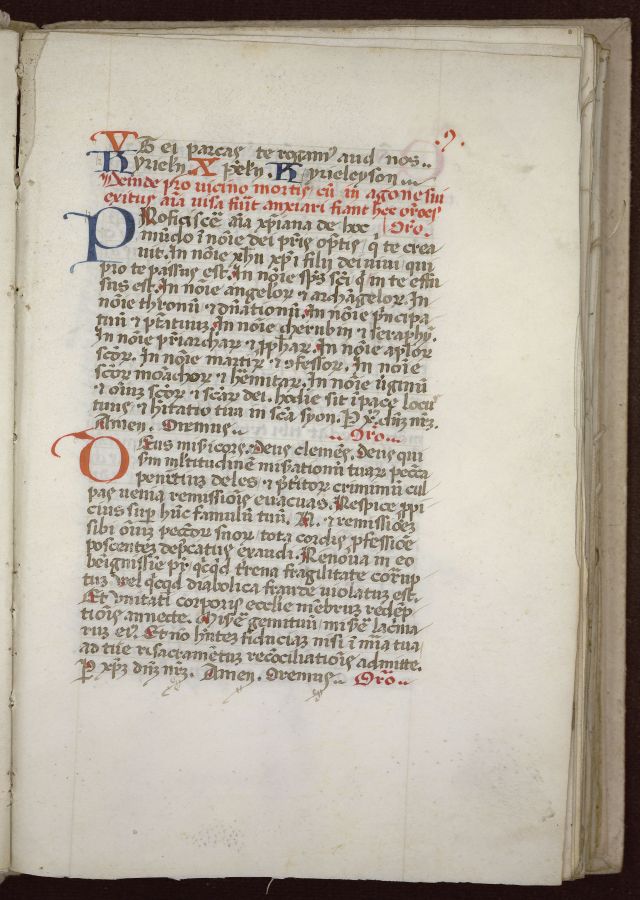 Vt ei parcas te rogam⁹ aud nos..
Kyriel'n Xp̄el'n. Kyrieleyson ...
Deinde pro vicino mortis cū in agone sui
exitus aīa uisa fūit anxiari fiant hec or̄oes
PRoficiscē aīa xp̄iana de hoc Or̄o.
mūdo ī nōie dei pr̄is op̄tis q̇ te crea
uit. In nōie ih̄u xp̄i filij dei uiui qui
pro te passus est. In nōie sp̄s sc̄i q̇ in te effu
sus est. In nōie angeloꝝ ⁊ archāgeloꝝ. In
nōie thronū ⁊ dn̄ationū. In nōie p̄ncipa
tuū ⁊ p̄tatuūz. In nōie cherubin ⁊ seraphȳ.
In nōie pr̄iarchaꝝ ⁊ ꝓphaꝝ. In nōie ap̄loꝝ
sc̄oꝝ. In nōie martiꝝ ⁊ ꝯfessoꝝ. In nōie
sc̄oꝝ mōachoꝝ ⁊ h̄emitaꝝ. In nōie ūginū
⁊ oīuz sc̄oꝝ ⁊ sc̄aꝝ dei. hodie sit ī pace locu
tuus ⁊ h̄itatio tua in sc̄a syon. P̱ xp̄. dn̄z nr̄z.
Amen. Oremus.. .. Or̄o...
DEus mis'icors. Deus clemēs. Deus qui
s'm ml'titudinē mis'ationū tuaꝝ pecc̄a
penitētiuz deles ⁊ p̄t'itoꝝ criminū cul
pas uenia remissiois euacuas. Respice ꝓpi
cius sup̱ hūc famulū tuū. N. ⁊ remissiōez
sibi oīuz pecc̄oꝝ suoꝝ tota cordis ꝯfessiōe
poscentez dep̄catus exaudi. Renoua in eo
beignissie pr̄ qc̄qd t'rena fragilitate corrup
tuz vel qc̄qd diabolica fraude violatuz est.
Et vnitati corporis ecclie mēbruz redēp
tiois annecte. Mis'ē gemituū mis'ē lac'ma
ruz ei⁹. Et nō h̄ntez fiduciaz nisi ī mīa tua
ad tue reconciliatiois admitte.
P̱ xp̄z dn̄z nr̄z. Amen. Oremus.. Or̄o..